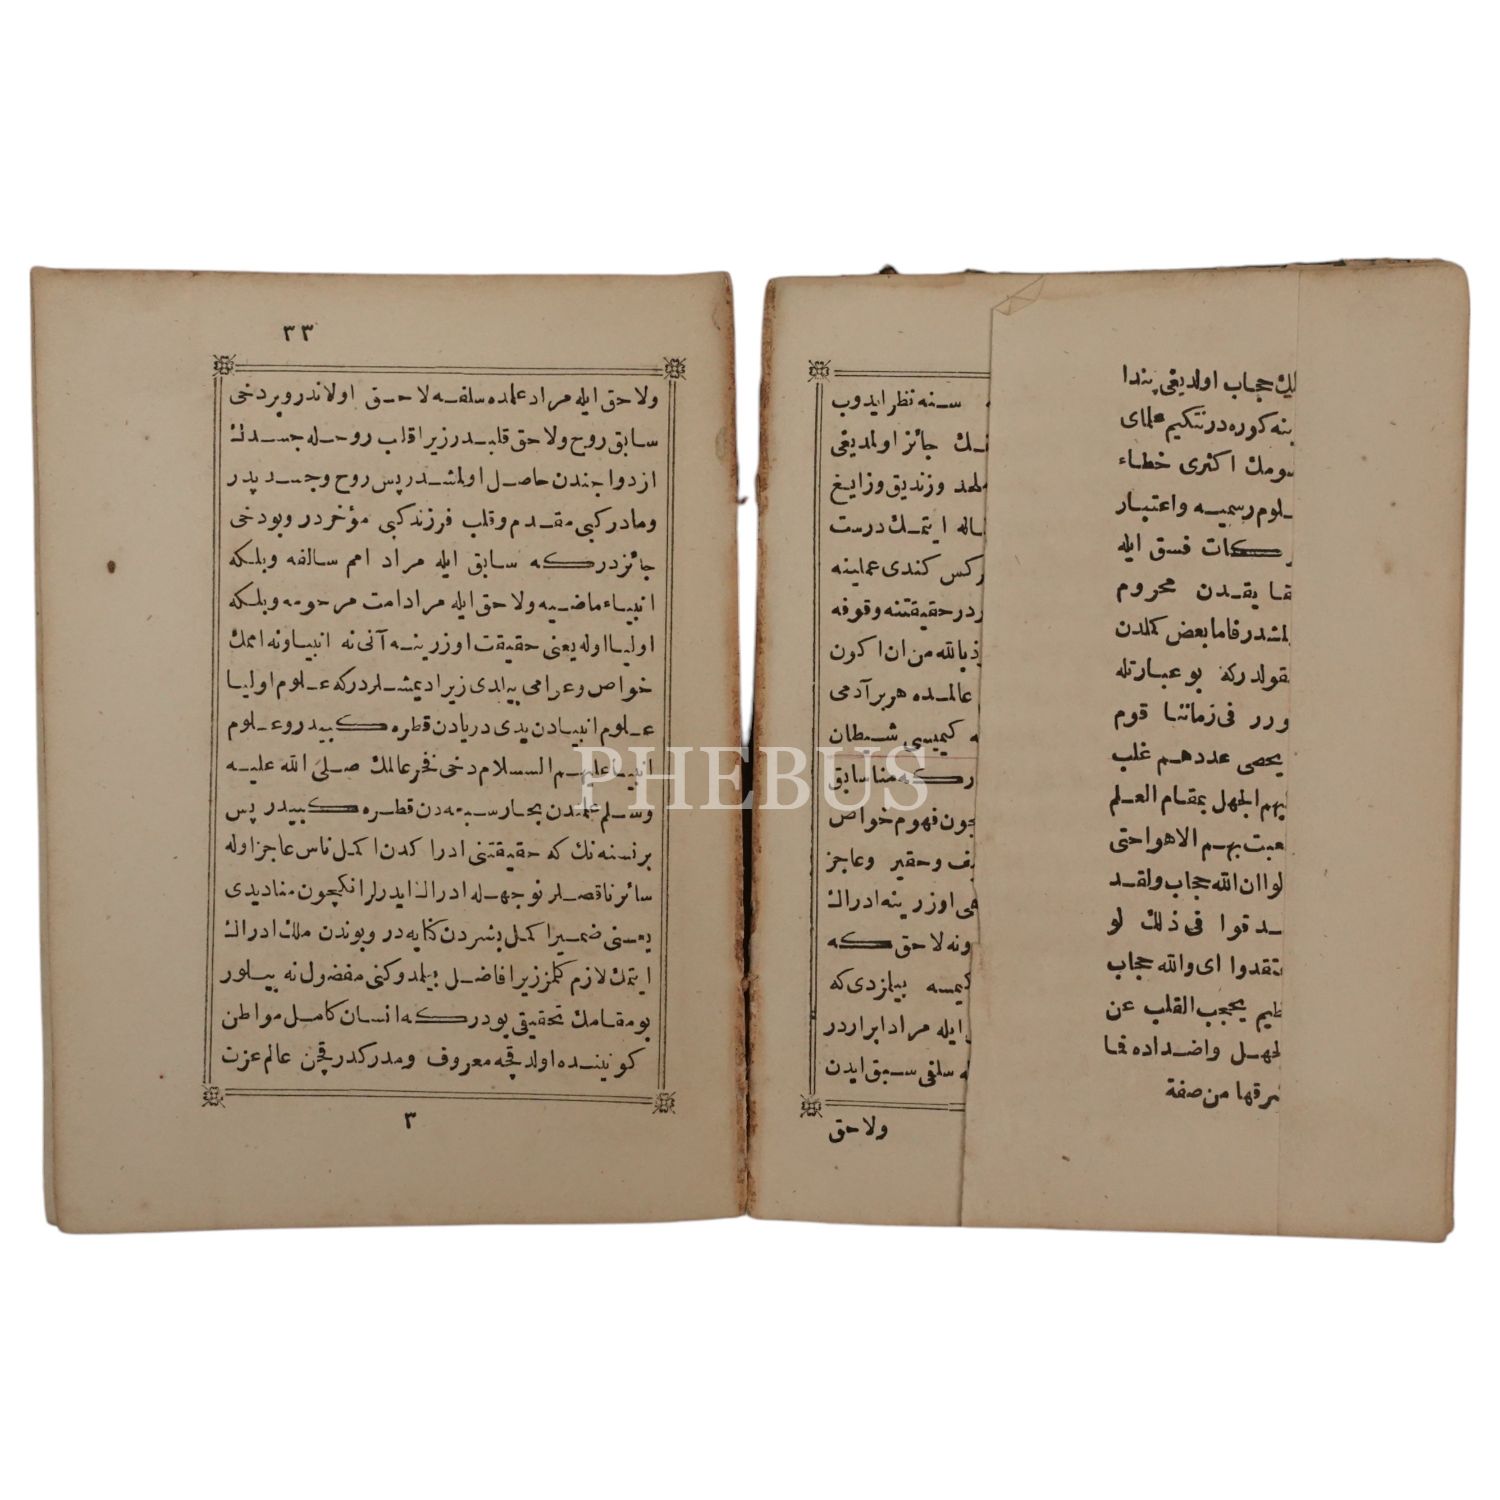 لك حجاب اولديغی پندا
ينه كوره در نتكيم علمای
سومك اكثری خطاء
ـلوم رسميه واعتبار
ـركات فسق ايله
قايقدن محروم
لمشدر فاما بعض كملدن
قولدركه بو عبارتله
ورر فی زماننا قوم
يحصی عددهم غلب
ليهم الجهل بمقام العلم
عبت بهم الاهواحتی
لوا ان الله حجاب ولقد
ـدقوا فی ذلك لو
تقدوا ای والله حجاب
ظيم يحجب القلب عن
لجهل واضداده فما
ـرقها من صفة
سنه نظر ايدوب
ـك جائز اولمديغی
ملحد وزنديق وزايغ
ـاله ايتمك درست
ركس كندی عملينه
ردر حقيقتنه وقوفه
ذ بالله من ان اكون
عالمده هر بر آدمی
كيميسی شيطان
ـركه منا سابق
چون فهوم خواص
ـف وحقير وعاجز
می اوزرينه ادراك
ونه لاحق كه
كيمسه بيلزدی كه
ايله مراد ابراردر
ـه سلفی سبق ايدن
ولاحق
PHEBUS
٣٣
ولاحق ايله مراد علمده سلفه لاحق اولاندر وبردخی
سابق روح ولاحق قلبدر زيرا قلب روحله جسدك
ازدواجندن حاصل اولمشدر پس روح وجسد پدر
ومادر كبی مقدم وقلب فرزند كبی مؤخردر وبودخی
جائزدركه سابق ايله مراد امم سالفه وبلكه
انبياء ماضيه ولاحق ايله مراد امت مرحومه وبلكه
اوليا اوله يعنی حقيقت اوزرينه آنی نه انبيا ونه امك
خواص وعوامی بيلدی زيرا ديمشلردركه علوم اوليا
علوم انبيادن يدی دريادن قطره كبيدر وعلوم
انبيا عليهم السلام دخی فخر عالمك صلی الله عليه
وسلم علمندن بحار سبعه دن قطره كبيدر پس
بر نسنه نك كه حقيقتنی ادراكدن اكمل ناس عاجز اوله
سائر ناقصلر نوجهله ادراك ايدرلر انكچون مناديدی
يعنی ضمير اكمل بشردن كنايه در وبوندن ملك ادراك
ايتمك لازم كلمز زيرا فاضل بيلمدوكنی مفضول نه بيلور
بو مقامك تحقيقی بودركه انسان كامل مواطن
كونينده اولدقجه معروف ومدركدر قچن عالم عزت
٣